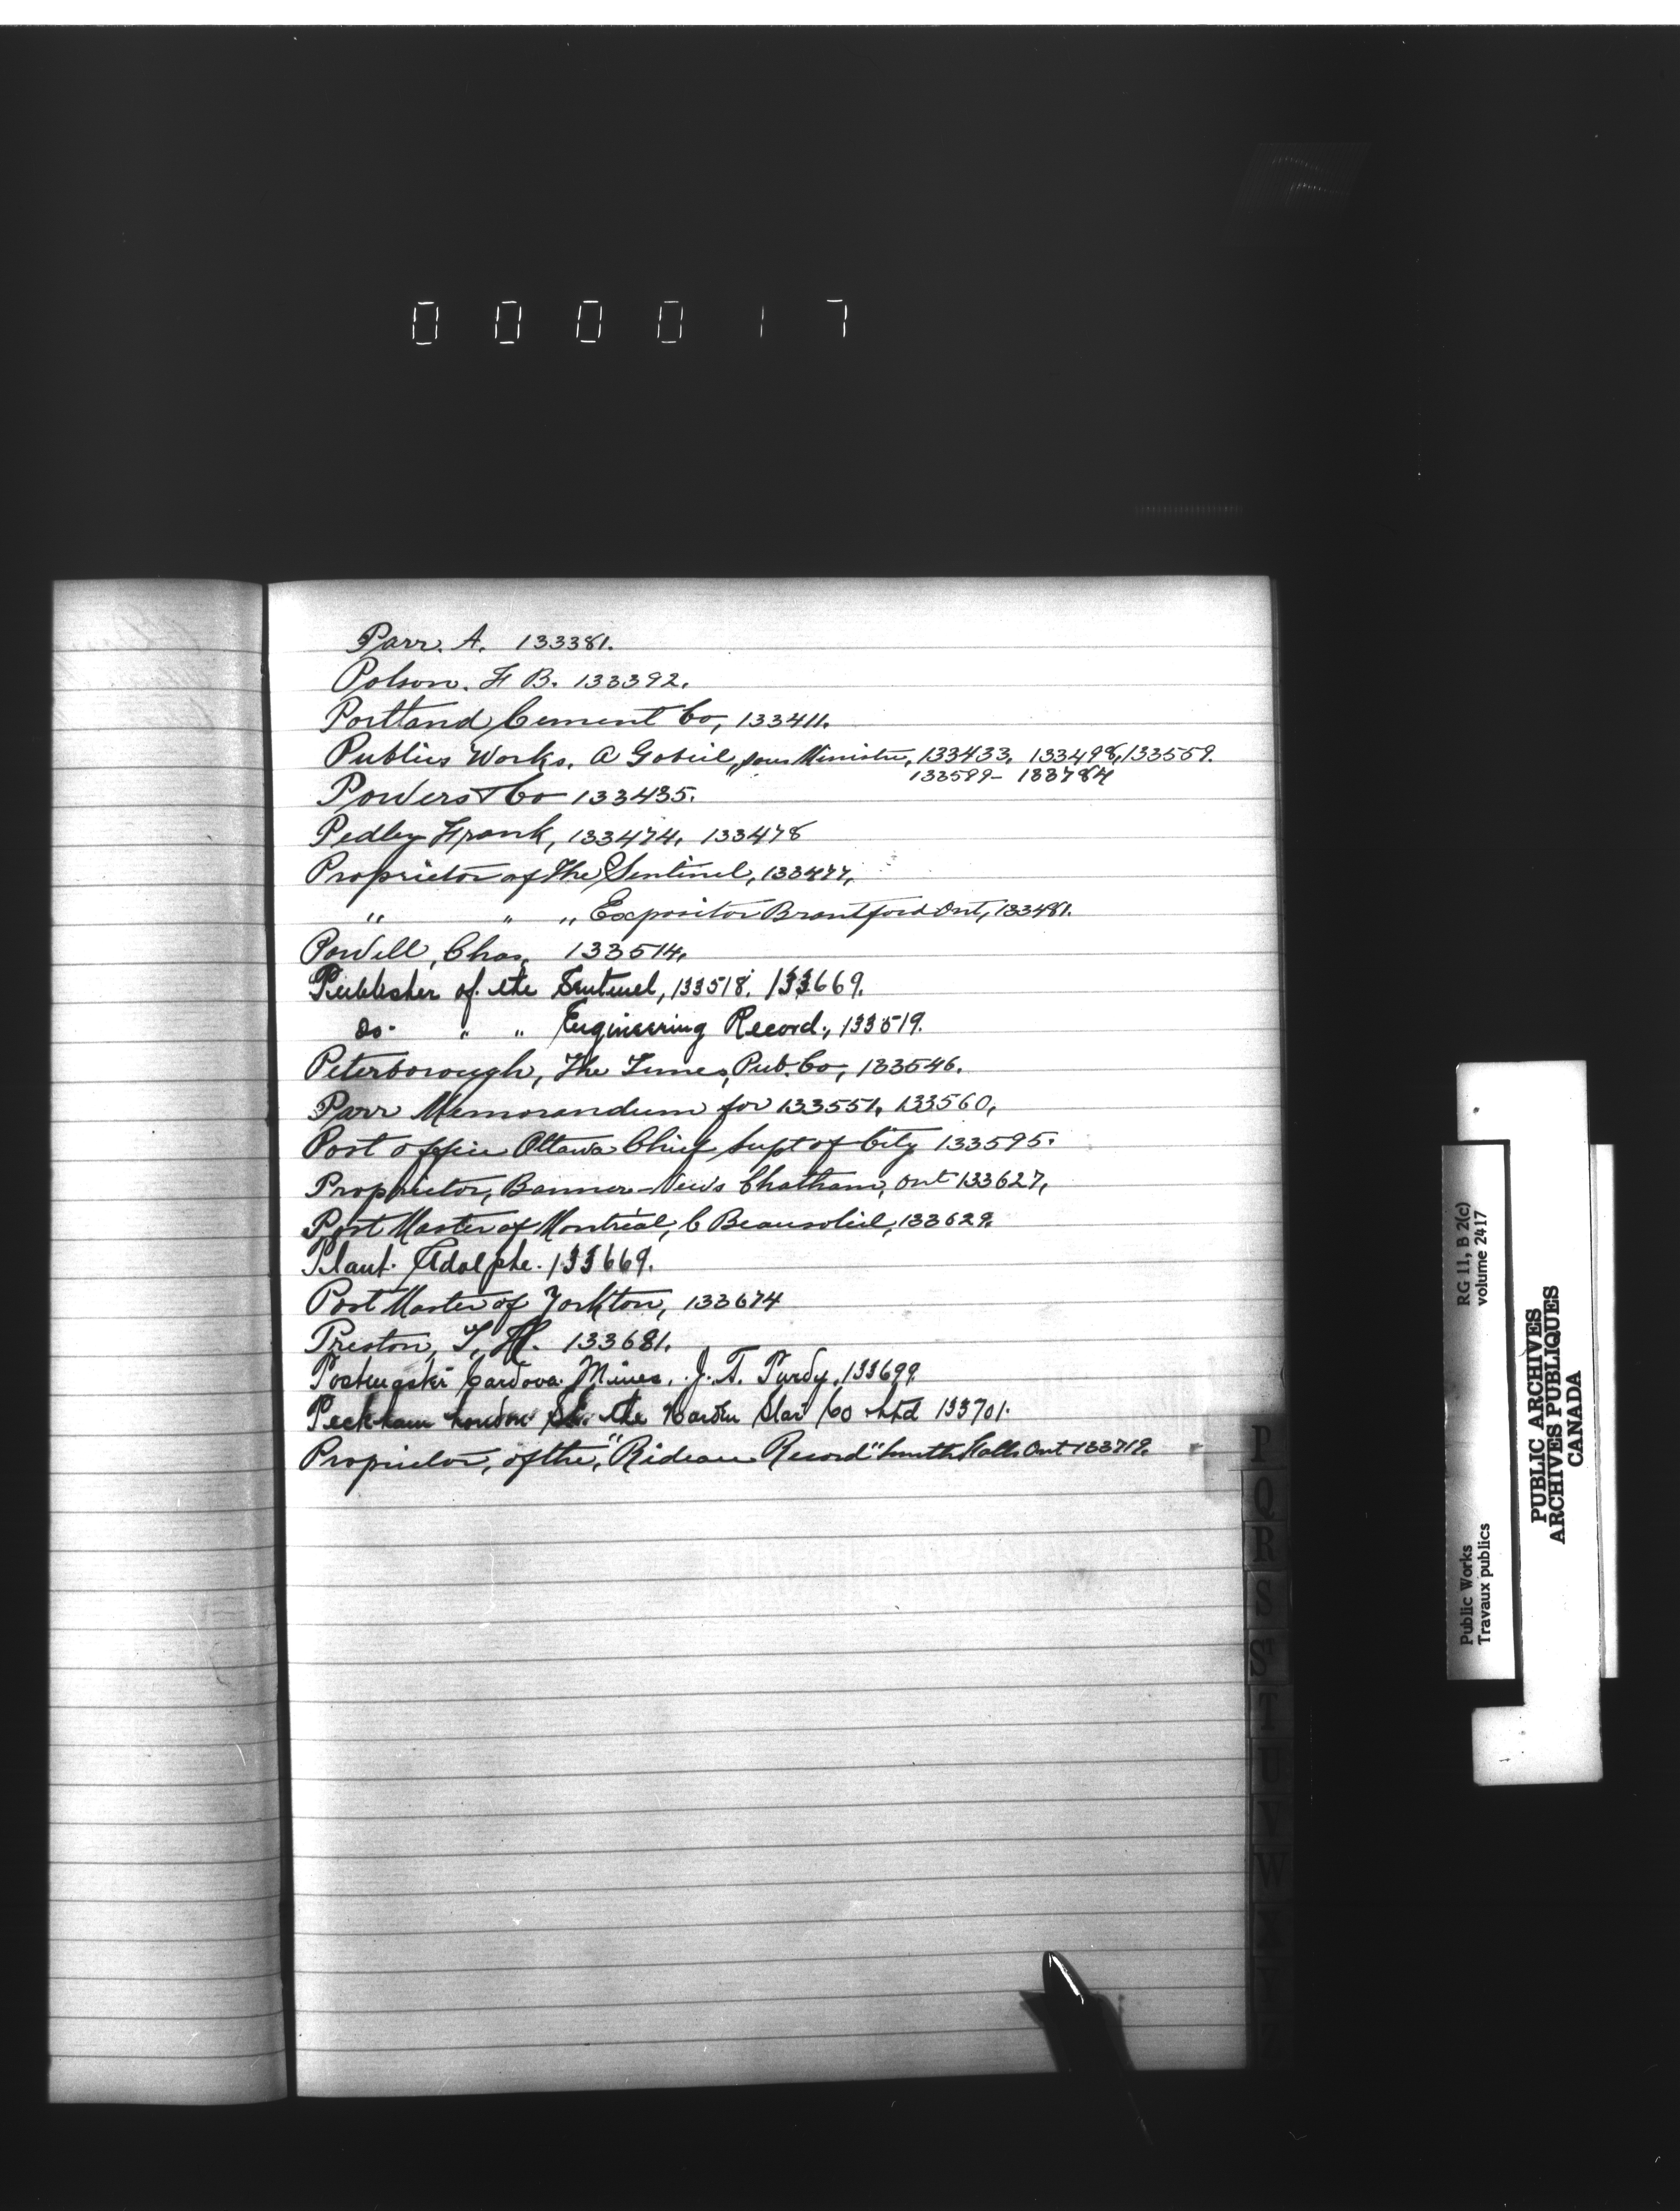 000017
Parr. A. 133381.
Polson. F B. 133392.
Portland Cement Co, 133411.
Publics Works. A Gobeil, sous Ministre, 133433, 133498, 133559.
133599- 133784
Powers & Co 133435.
Pedley Frank, 133474, 133478
Proprietor of The Sentinel, 133477,
" " " Expositor Brantford Ont, 133481.
Powell, Chas, 133514,
Publisher of the Sentinel, 133518. 133669.
do. " " Engineering Record., 133519.
Peterborough, The Times, Pub. Co, 133546.
Parr Memorandum for 133551, 133560,
Post office Ottawa Chief Supt of City 133595.
Proprietor, Banner-News Chatham, Ont 133627,
Post Master of Montreal, C Beausoleil, 133629.
Plaut. Adolphe. 133669.
Post Master of Yorkton, 133674
Preston, T, H. 133681.
Cordova Mines. J. T. Purdy, 133699
Peckham London the Harden Star Co Ltd 133701.
Proprietor, of the, "Rideau Record" Smith Falls Ont 133719.
P
Q
R
S
St
T
U
V
W
Y
Z
Public Works
Travaux publics
RG 11, B 2(c)
volume 2417
PUBLIC ARCHIVES
ARCHIVES PUBLIQUES
CANADA